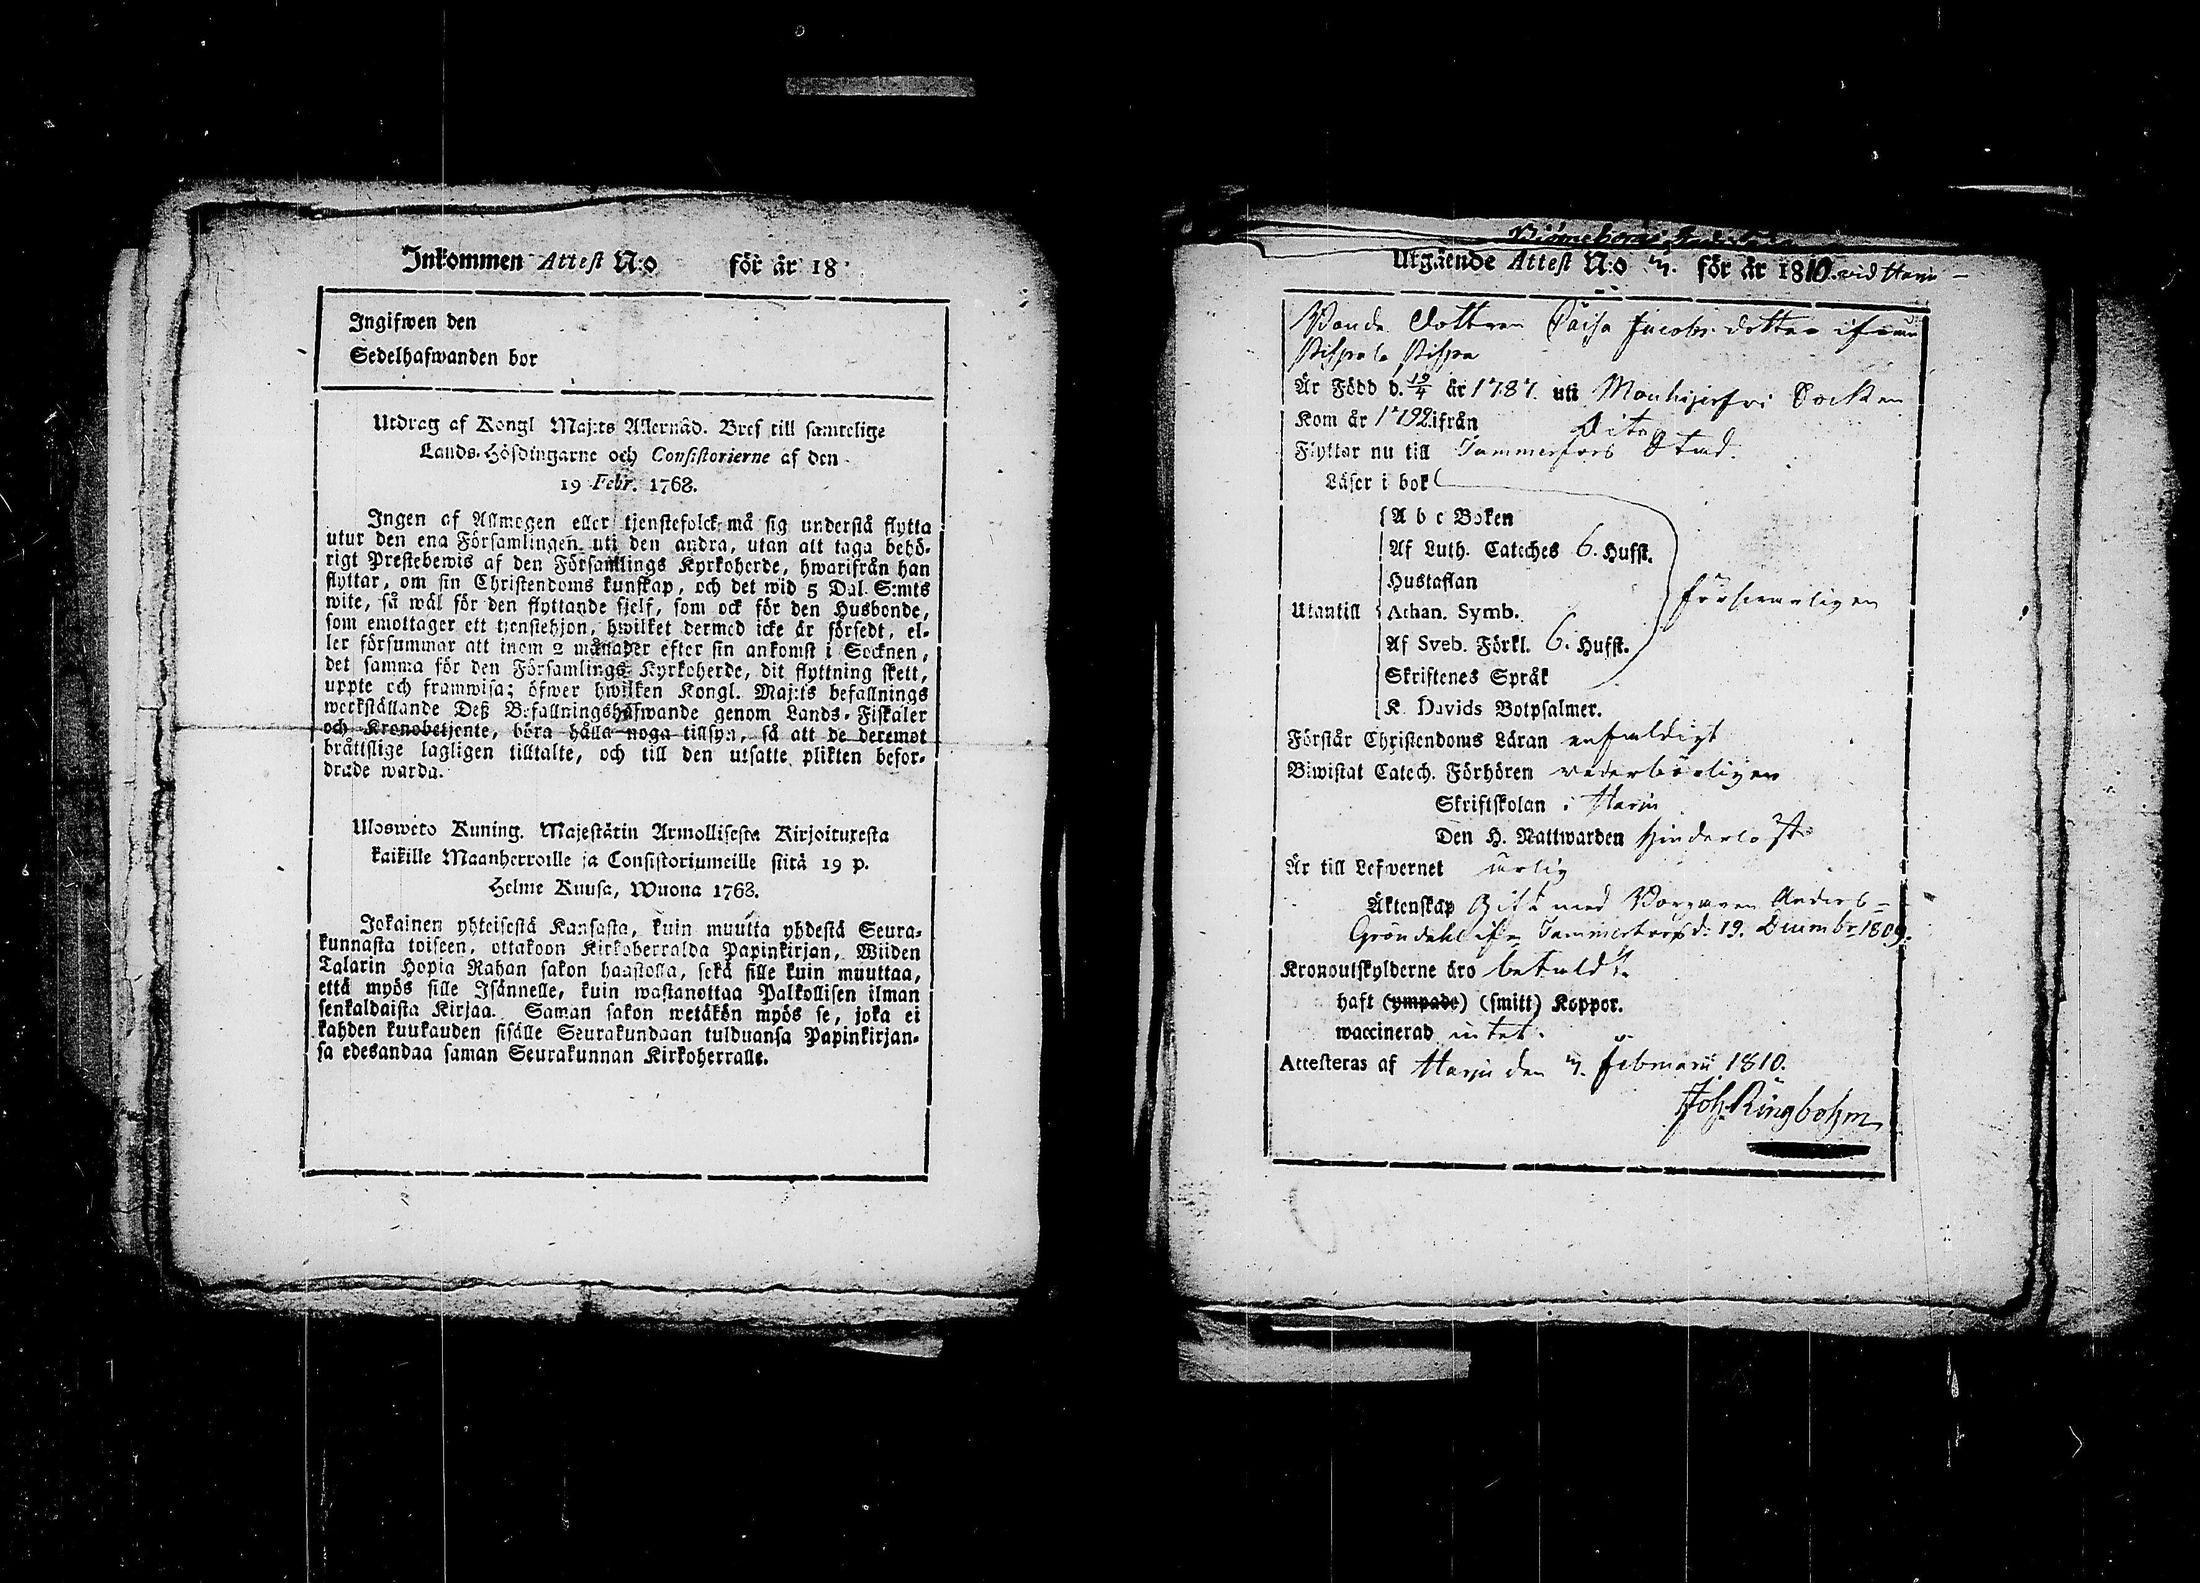 Inkommen Attest N:o för år 18
Ingifwen den
Sedelhafwanden bor
Utdrag af Kongl Maj:ts Allernåd. Bref till samtelige
Lands-Höfdingarne och Consistorierne af den
19 Febr. 1768.
Ingen af Allmogen eller tjenstefolck må sig understå flytta
utur den ena Församlingen uti den andra, utan att taga behö-
rigt Prestebewis af den Församlings Kyrkoherde, hwarifrån han
flyttar, om sin Christendoms kunskap, och det wid 5 Dal. S:mts
wite, så wäl för den flyttande sjelf, som ock för den Husbonde,
som emottager ett tjenstehjon, hwilket dermed icke är försedt, el-
ler försummar att inom 2 månader efter sin ankomst i Socknen,
det samma för den Församlings Kyrkoherde, dit flyttning skett,
uppte och framwisa; öfwer hwilken Kongl. Maj:ts befallnings
werkställande Deß Befallningshafwande genom Lands-Fiskaler
och Kronobetjente, böra hålla noga tillsyn, så att de deremot
bråttslige lagligen tilltalte, och till den utsatte plikten befor-
drade warda.
Ulosweto Kuning. Majestätin Armollisesta Kirjoituxesta
kaikille Maanherroille ja Consistoriumeille siitä 19 p.
Helme Kuusa, Wuona 1768.
Jokainen yhteisestä Kansasta, kuin muutta yhdestä Seura-
kunnasta toiseen, ottakoon Kirkoherralda Papinkirjan, Wiiden
Talarin Hopia Rahan sakon haastolla, sekä sille kuin muuttaa,
että myös sille Isännelle, kuin wastanottaa Palkollisen ilman
senkaldaista Kirjaa. Saman sakon wetäkön myös se, joka ei
kahden kuukauden sisälle Seurakundaan tulduansa Papinkirjan-
sa edesandaa saman Seurakunnan Kirkoherralle.
Utgående Attest N:o 7. för år 1810. wid Harju
Bonde Dottren Caisa Jacobs dotter ifrån
Pispala Pispa
Är Född d. 19/4 år 1787. uti Mouhijerfvi Socken
Kom år 1792 ifrån Dito
Flyttar nu till Tammerfors Stad.
Läser i bok
A b c Boken
Af Luth. Cateches 6. Hufst.
Hustaflan
Utantill Athan. Symb. försvarligen
Af Sveb. Förkl. 6. Hufst.
Skriftenes Språk
K. Davids Botpsalmer.
Förstår Christendoms Läran enfaldigt
Biwistat Catech. Förhören wederbörligen
Skriftskolan i Harju
Den H. Nattwarden hinderlöst
Är till Lefwernet ärlig
Äktenskap Gift med Borgaren Anders
Gröndahl ifr. Tammerfors d: 19. Decembr 1809.
Kronoutskylderne äro betald
haft (ympade) (smitt) Koppor.
waccinerad intet.
Attesteras af Harju den 7. Februarii 1810.
Joh. Ringbohm